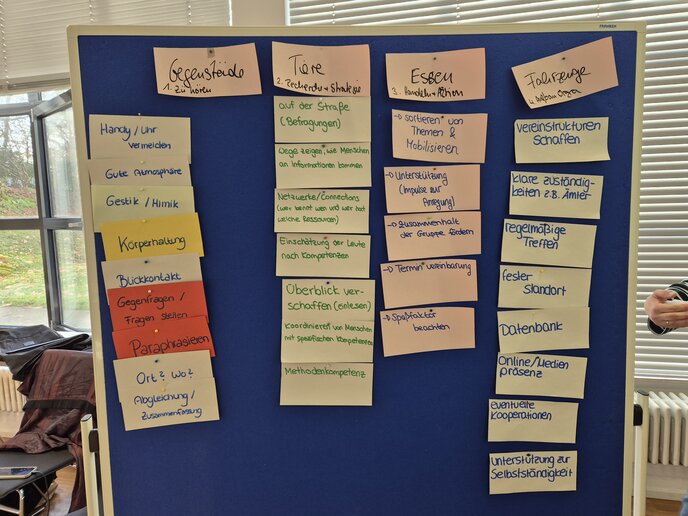 FRANKEN
Gegenstände
1. Zu hören
Handy/Uhr
vermeiden
Gute Atmosphäre
Gestik/Mimik
Körperhaltung
Blickkontakt
Gegenfragen/
Fragen stellen
Paraphrasieren
Ort? Wo?
Abgleichung/
Zusammenfassung
Tiere
2. Recherche + Struktur
auf der Straße
(Befragungen)
Wege zeigen, wie Menschen
an Informationen kommen
Netzwerke/Connections
(wer kennt wen und wer hat
welche Ressourcen)
Einschätzung der Leute
nach Kompetenzen
Überblick ver-
schaffen (einlesen)
Koordinieren von Menschen
mit spezifischen Kompetenzen
Methodenkompetenz
Essen
3. Handeln + Aktion
→ sortieren von
Themen &
Mobilisieren
→ Unterstützung
(Impulse zur
Anregung)
→ Zusammenhalt
der Gruppe fördern
→ Termin vereinbarung
→ Spaßfaktor
beachten
Fahrzeuge
4. Aufbau Orga
Vereinstrukturen
schaffen
klare zuständig-
keiten z.B. Ämter
regelmäßige
Treffen
fester
Standort
Datenbank
Online/Medien
präsenz
eventuelle
Kooperationen
Unterstützung zur
Selbstständigkeit